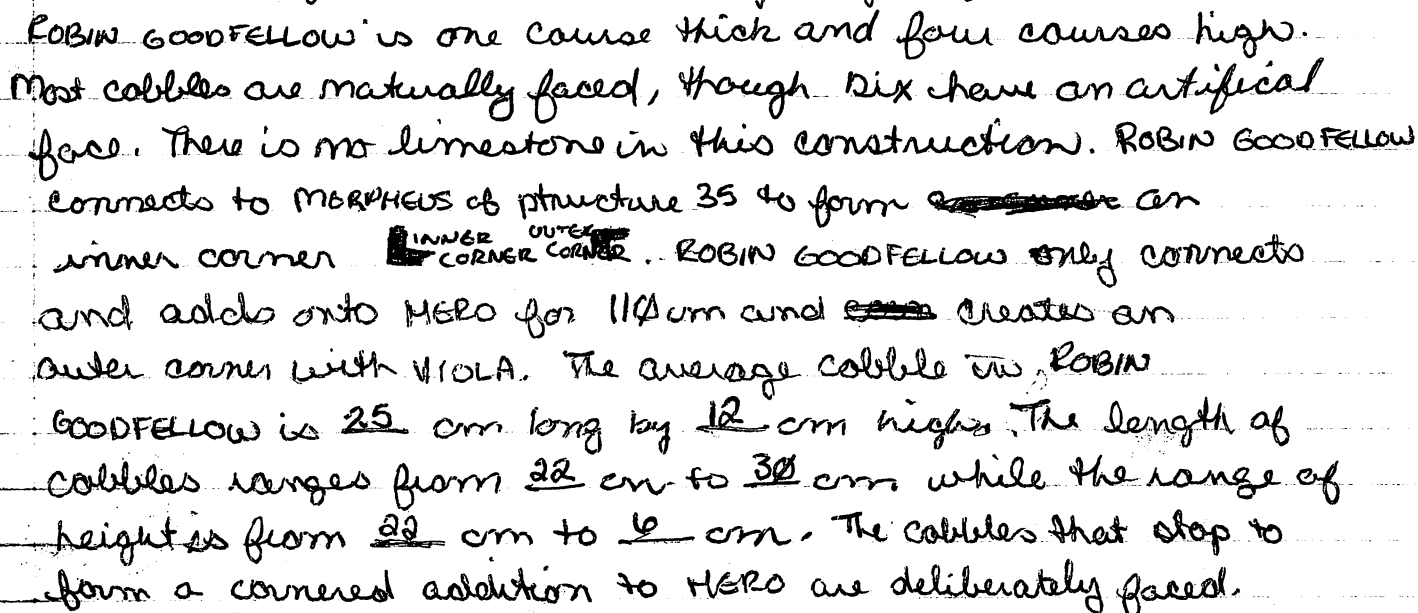 ROBIN GOODFELLOW is one course thick and four courses high.
Most cobbles are naturally faced, though six have an artifical
face. There is no limestone in this construction. ROBIN GOODFELLOW
connects to MORPHEUS of structure 35 to form an
inner corner INNER CORNER OUTER CORNER. ROBIN GOODFELLOW only connects
and adds onto HERO for 110 cm and creates an
outer corner with VIOLA. The average cobble in ROBIN
GOODFELLOW is 25 cm long by 12 cm high. The length of
cobbles ranges from 22 cm to 30 cm while the range of
height is from 22 cm to 6 cm. The cobbles that stop to
form a cornered addition to HERO are deliberately faced.